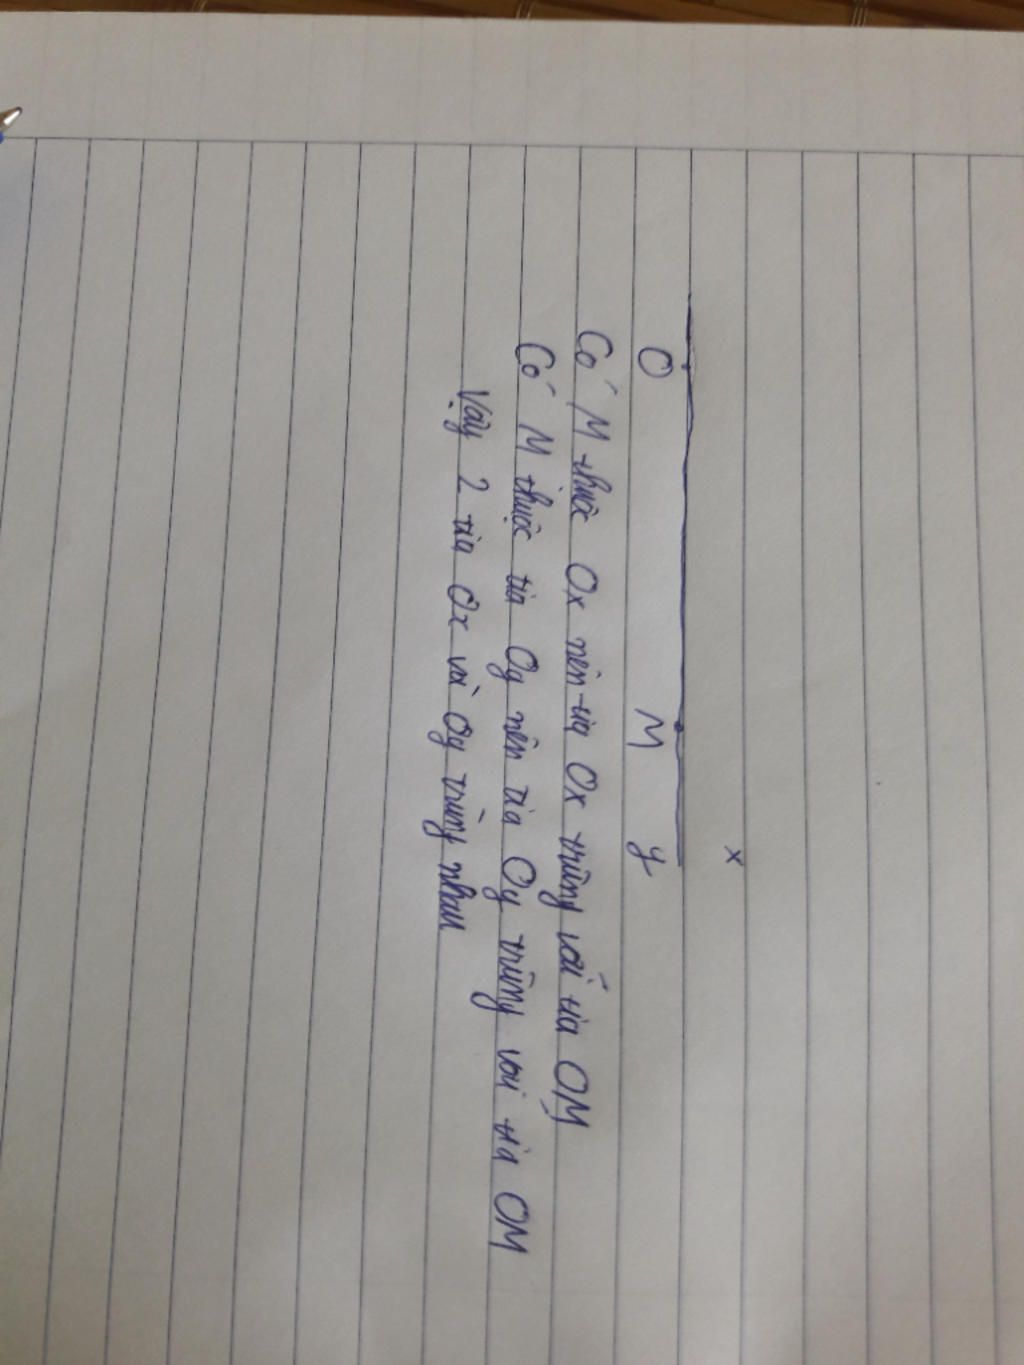 x
O M y
Có M thuộc Ox nên tia Ox trùng với tia OM
Có M thuộc tia Oy nên tia Oy trùng với tia OM
Vậy 2 tia Ox và Oy trùng nhau